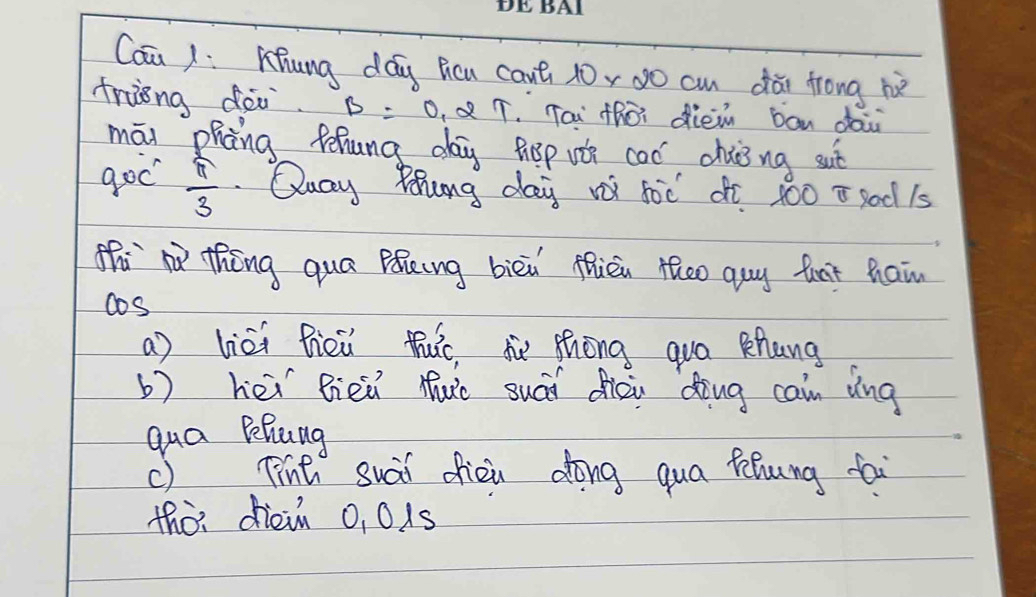 ĐỀ BÀI
Câu 1: Khung dây hcn cạnh 10 x 20 cm đặt trong từ
trường đều. B = 0,2 T. Tại thời điểm ban đầu
mặt phẳng khung dây hợp với các đường sức
góc π/3. Quay khung dây với tốc độ 100 π rad/s
thì từ thông qua khung biến thiên theo quy luật hàm
cos
a) viết biểu thức, từ thông qua khung
b) viết biểu thức suất điện động cảm ứng
qua khung
c) Tính suất điện động qua khung tại
thời điểm 0,01s